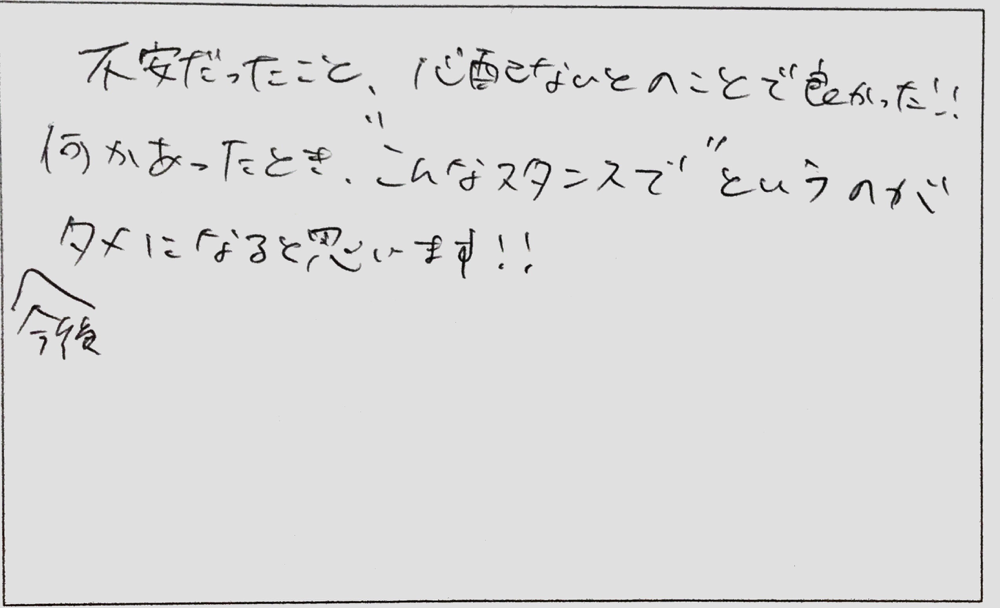 不安だったこと、心配ないとのことで良かった!!
何かあったとき、"こんなスタンスで"というのが
今後タメになると思います!!